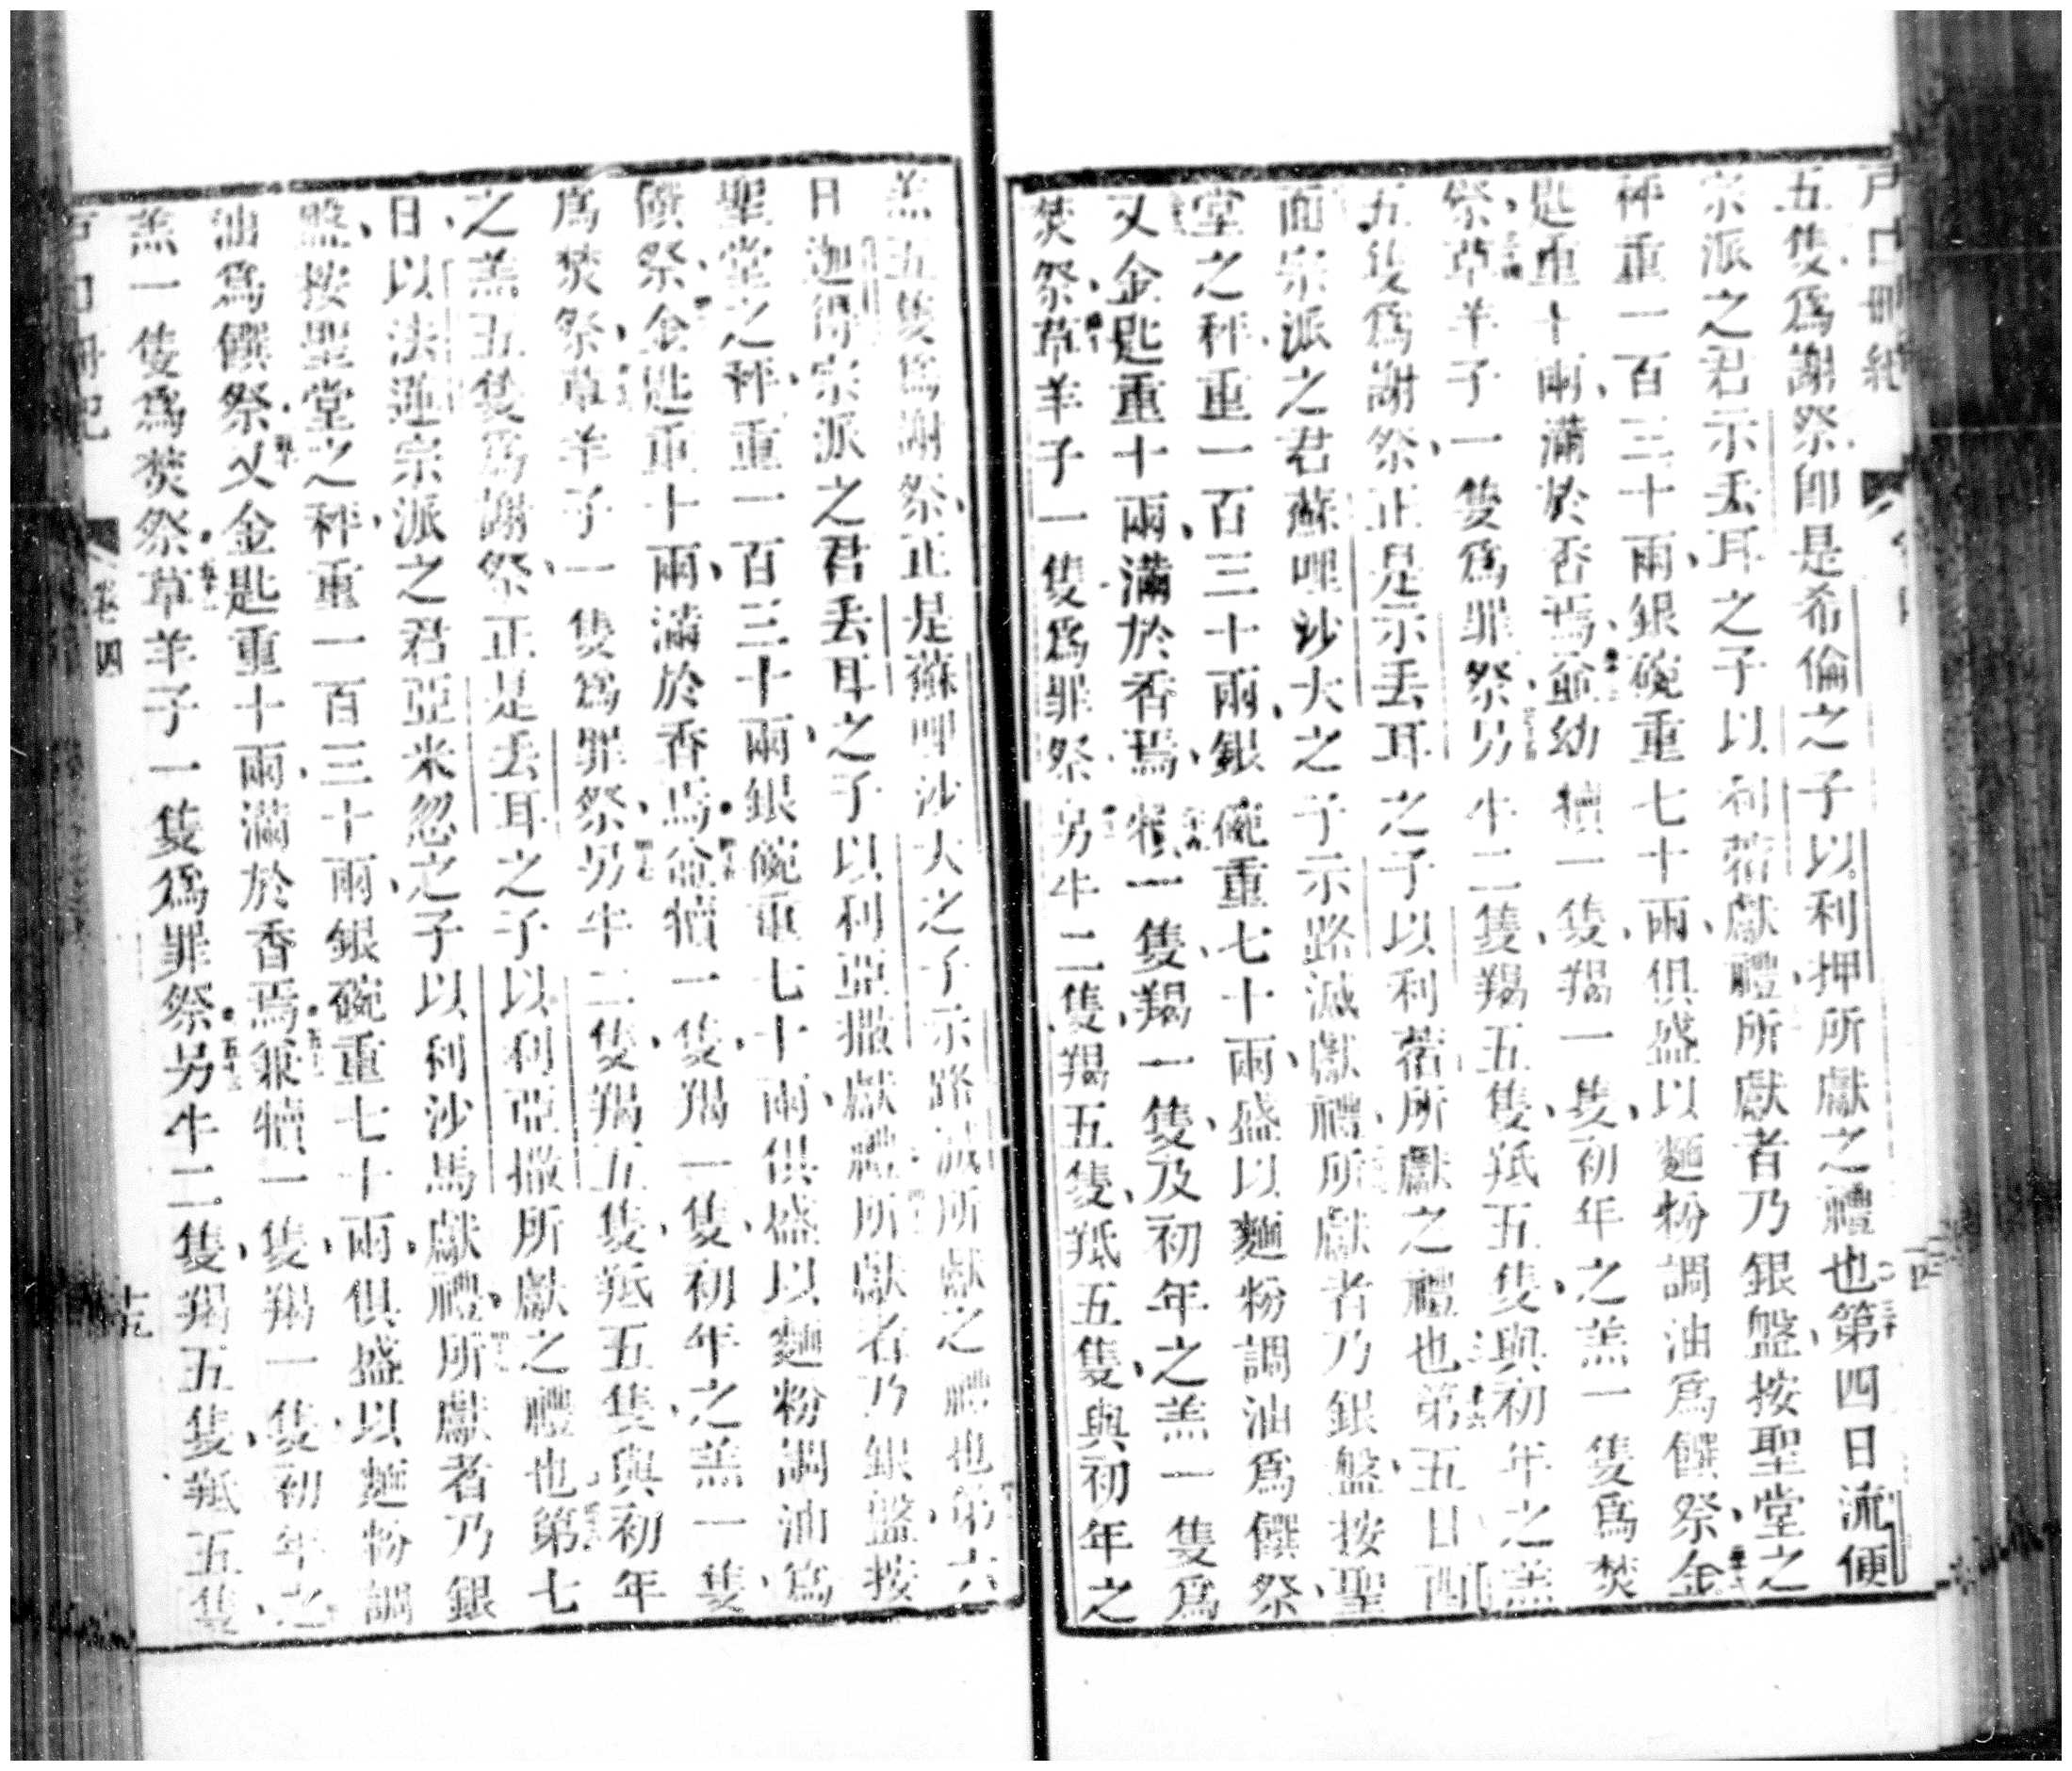 戶口冊紀
五隻爲謝祭卽是希倫之子以利押所獻之禮也第四日流便
宗派之君示丟耳之子以利蓿獻禮所獻者乃銀盤按聖堂之
秤重一百三十兩銀碗重七十兩俱盛以麵粉調油爲饌祭金
匙重十兩滿於香焉並幼犢一隻羯一隻初年之羔一隻爲焚
祭草羊子一隻爲罪祭另牛二隻羯五隻羝五隻與初年之羔
五隻爲謝祭正是示丟耳之子以利蓿所獻之禮也第五日酉
面宗派之君蘇哩沙大之子示路滅獻禮所獻者乃銀盤按聖
堂之秤重一百三十兩銀碗重七十兩盛以麵粉調油爲饌祭
又金匙重十兩滿於香焉犢一隻羯一隻及初年之羔一隻爲
焚祭草羊子一隻爲罪祭另牛二隻羯五隻羝五隻與初年之
羔五隻爲謝祭正是蘇哩沙大之子示路滅所獻之禮也第六
日迦得宗派之君丟耳之子以利亞撒獻禮所獻者乃銀盤按
聖堂之秤重一百三十兩銀碗重七十兩俱盛以麵粉調油爲
饌祭金匙重十兩滿於香焉並犢一隻羯一隻初年之羔一隻
爲焚祭草羊子一隻爲罪祭另牛二隻羯五隻羝五隻與初年
之羔五隻爲謝祭正是丟耳之子以利亞撒所獻之禮也第七
日以法蓮宗派之君亞米忽之子以利沙馬獻禮所獻者乃銀
盤按聖堂之秤重一百三十兩銀碗重七十兩俱盛以麵粉調
油爲饌祭又金匙重十兩滿於香焉兼犢一隻羯一隻初年之
羔一隻爲焚祭草羊子一隻爲罪祭另牛二隻羯五隻羝五隻
戶口冊紀 卷四